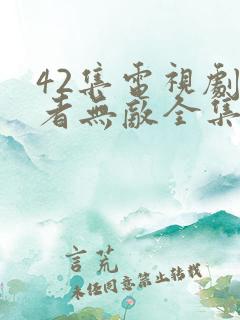 42集電視劇
者無敵全集
言荒
未经同意禁止转载